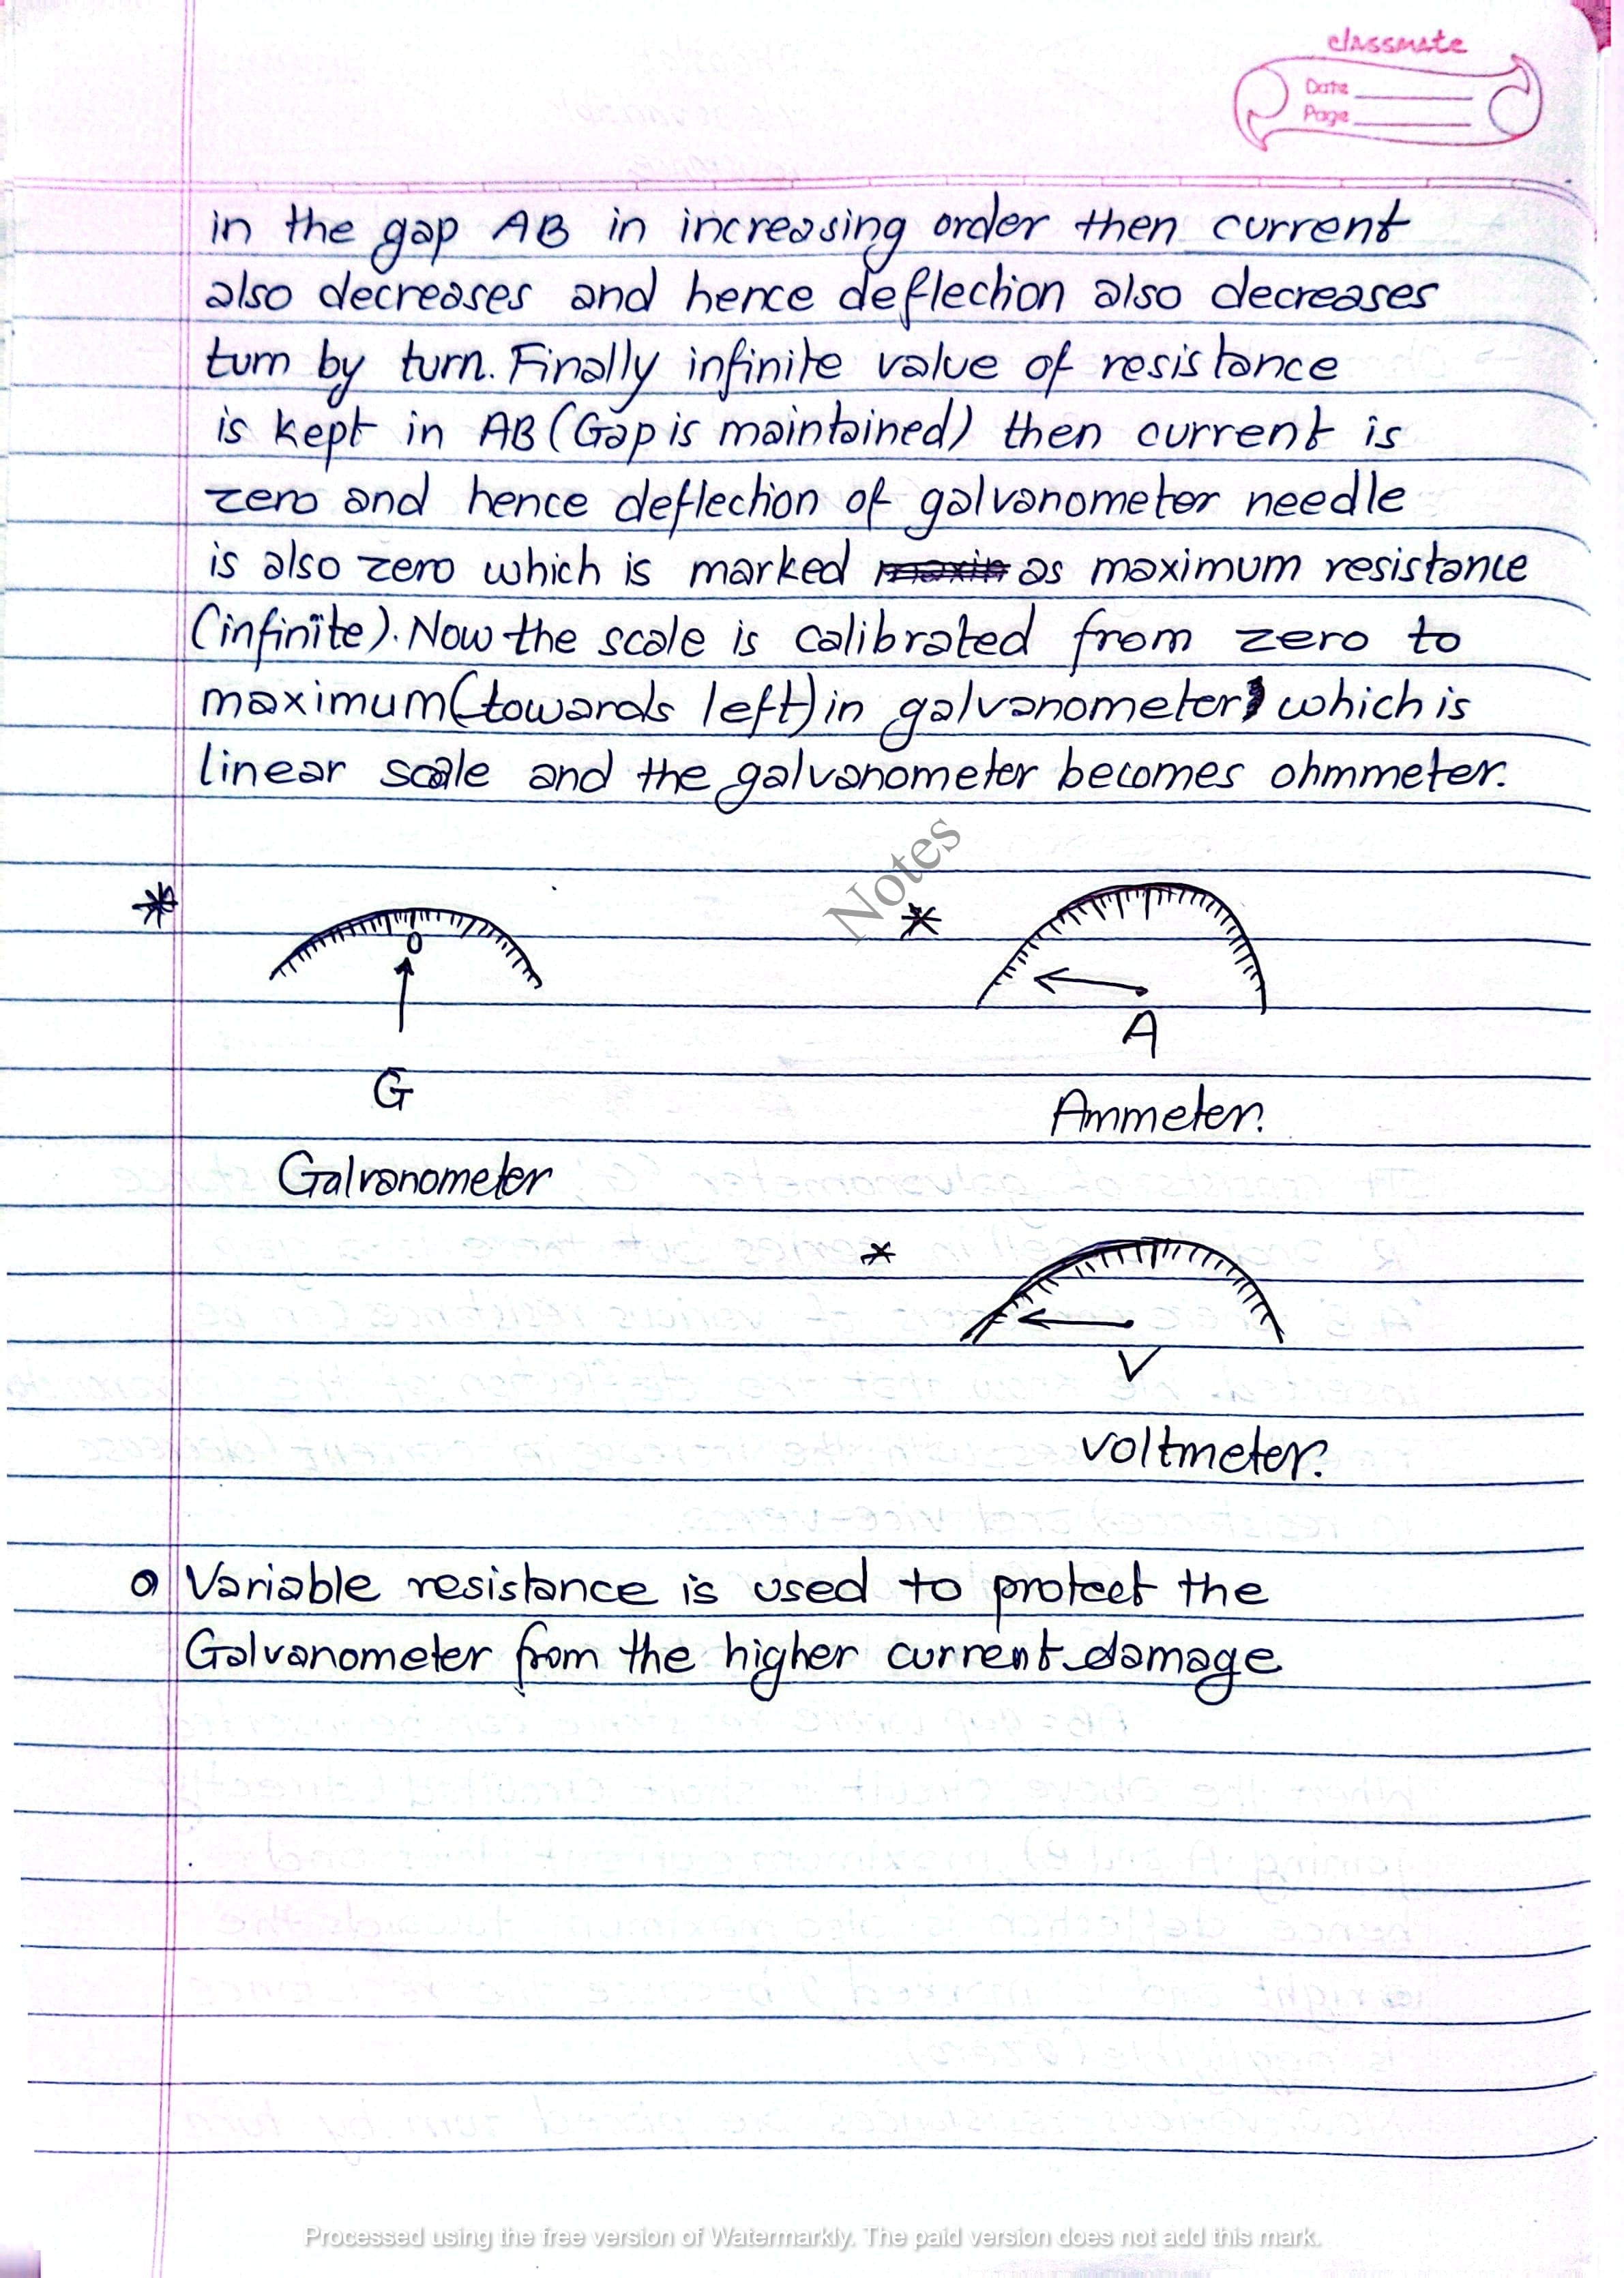 classmate
Date
Page
in the gap AB in increasing order then current
also decreases and hence deflection also decreases
turn by turn. Finally infinite value of resistance
is kept in AB (Gap is maintained) then current is
zero and hence deflection of galvanometer needle
is also zero which is marked as maximum resistance
(infinite). Now the scale is calibrated from zero to
maximum (towards left) in galvanometer which is
linear scale and the galvanometer becomes ohmmeter.
Notes
*
*
0
A
G
Ammeter.
Galvanometer
*
V
voltmeter.
Variable resistance is used to protect the
Galvanometer from the higher current damage
Processed using the free version of Watermarkly. The paid version does not add this mark.